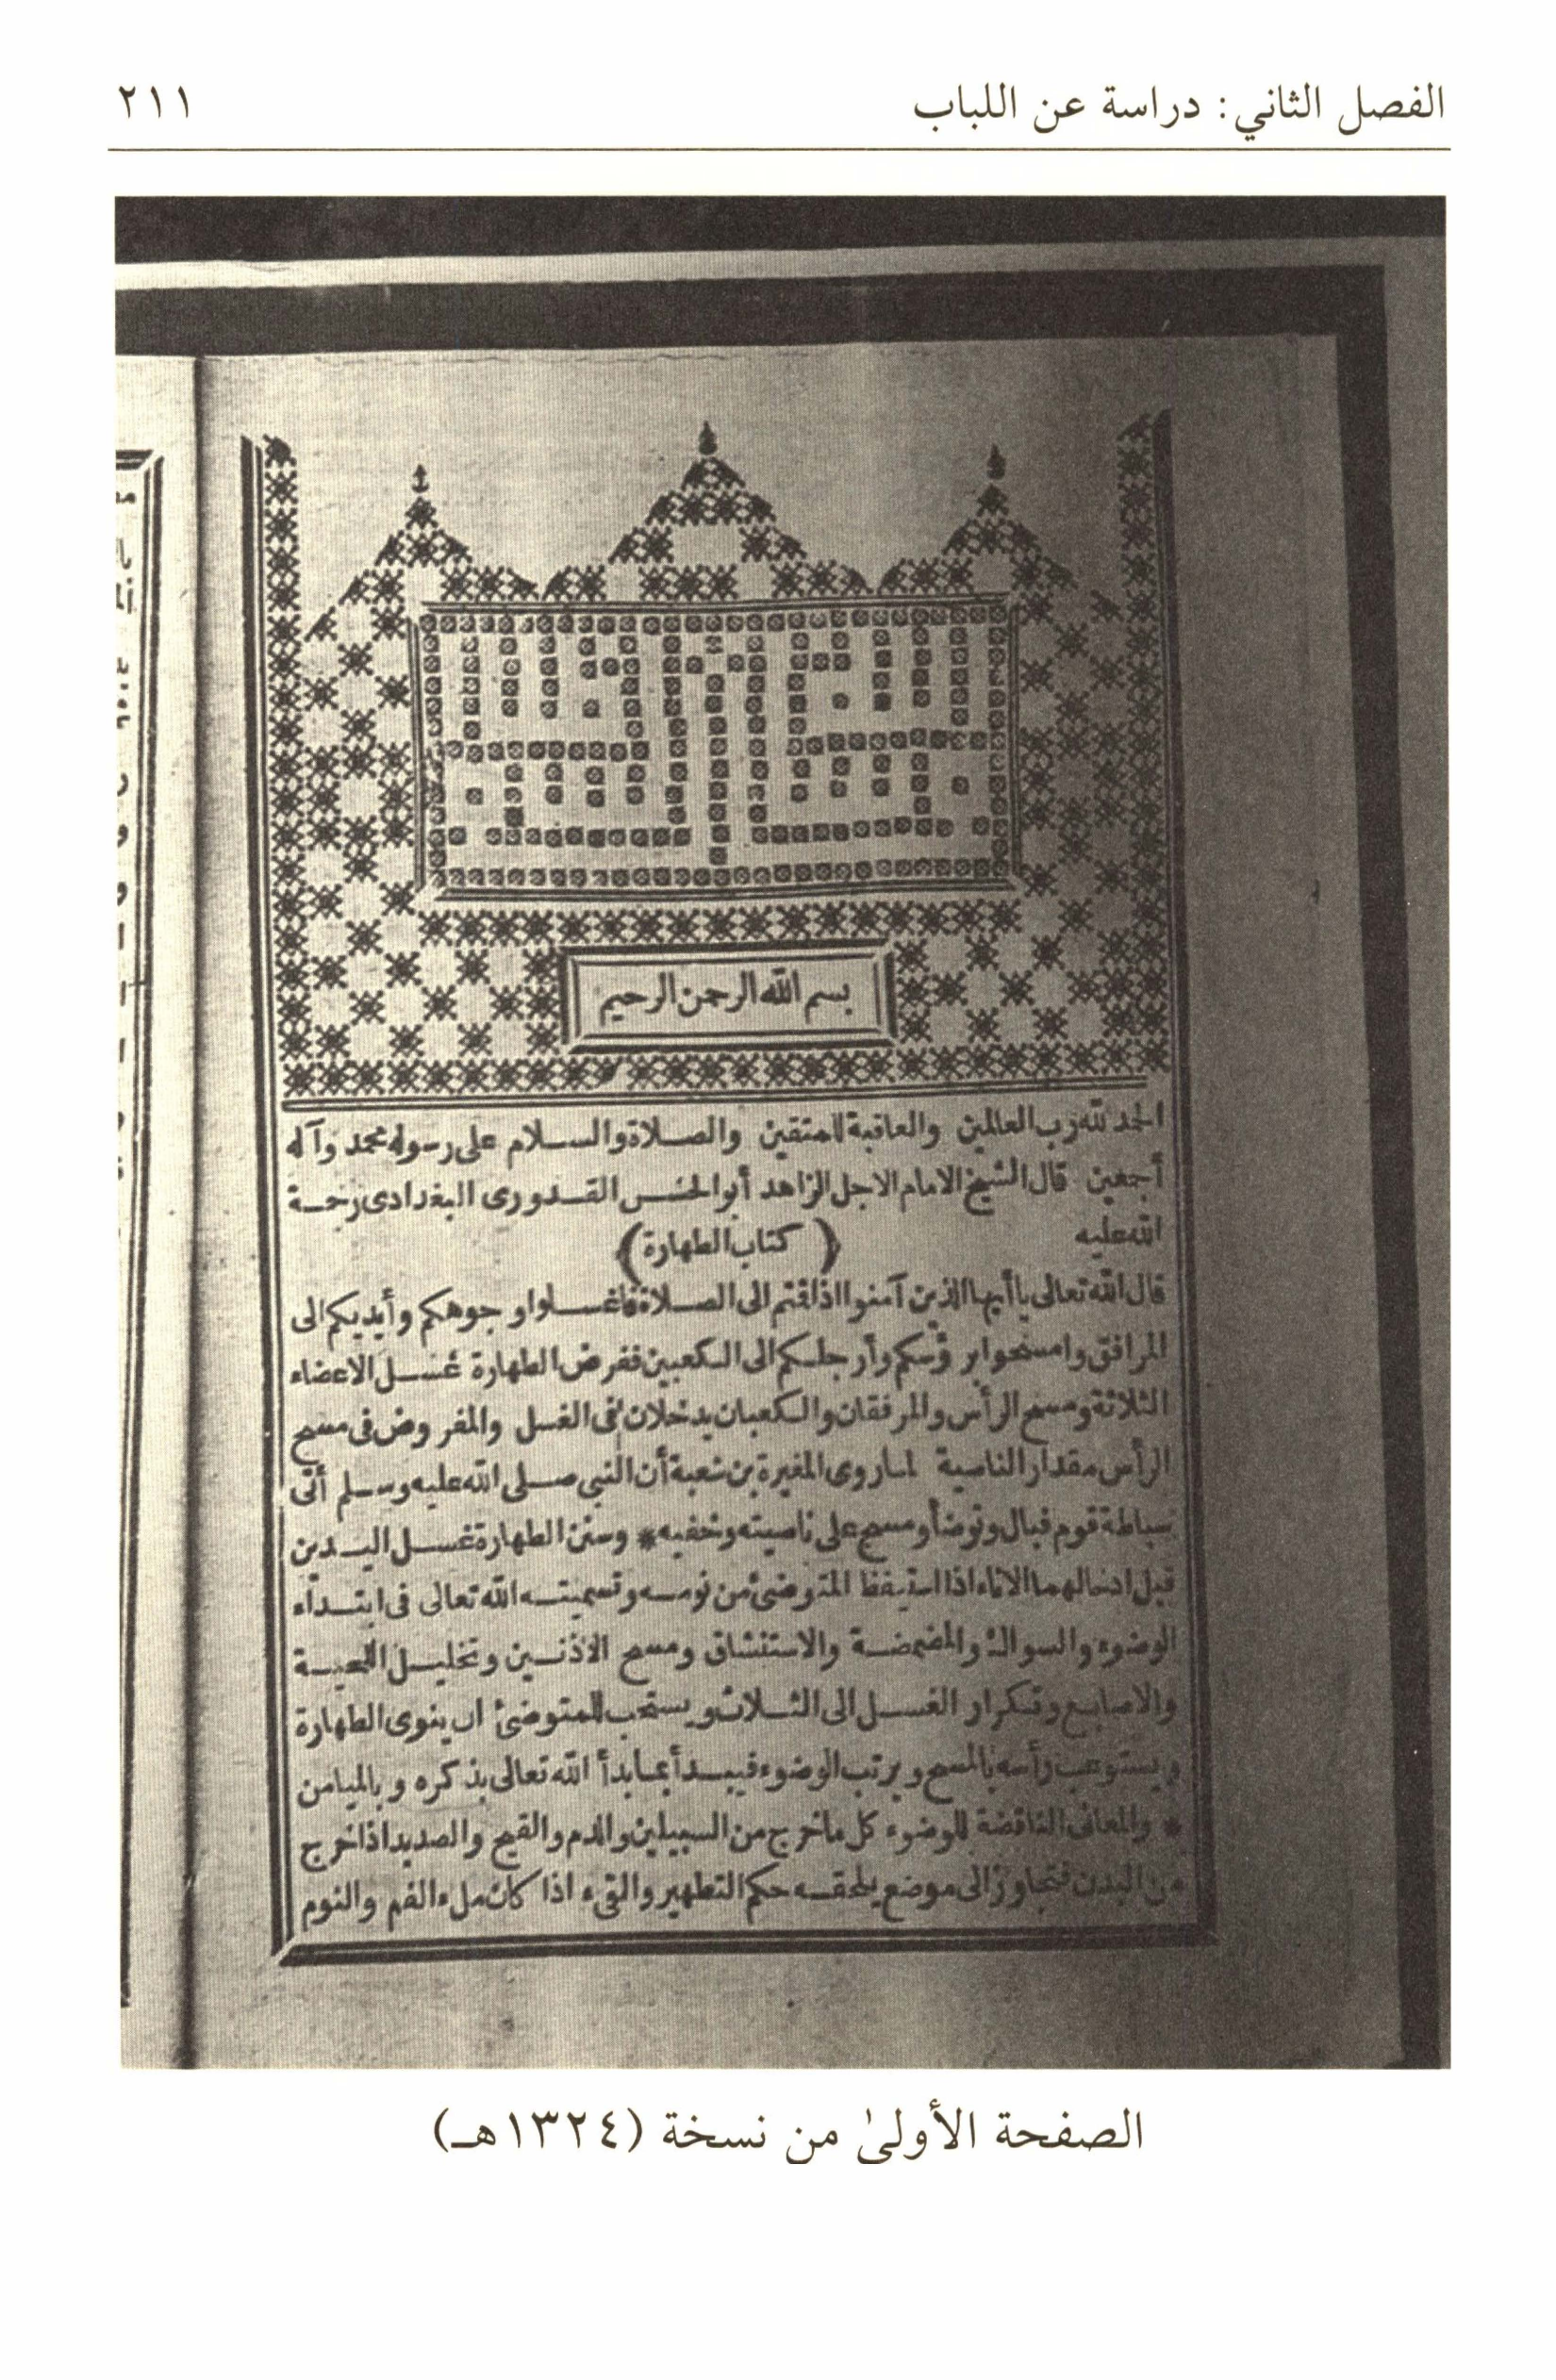 الفصل الثاني: دراسة عن اللباب
٢١١
بسم الله الرحمن الرحيم
الحمد لله رب العالمين والعاقبة للمتقين والصلاة والسلام على رسوله محمد وآله
أجمعين قال الشيخ الامام الاجل الزاهد أبو الحسن القدورى البغدادى رحمة
الله عليه
(كتاب الطهارة)
قال الله تعالى يا أيها الذين آمنوا اذا قتم الى الصلاة فاغسلوا وجوهكم وأيديكم الى
المرافق وامسحوا برؤسكم وأرجلكم الى الكعبين ففرض الطهارة غسل الاعضاء
الثلاثة ومسح الرأس والمرفقان والكعبان يدخلان فى الغسل والمفروض فى مسح
الرأس مقدار الناصية لما روى المغيرة بن شعبة أن النبى صلى الله عليه وسلم أتى
سباطة قوم فبال وتوضأ ومسح على ناصيته وخفيه * وسنن الطهارة غسل اليدين
قبل ادخالهما الاناء اذا استيقظ المتوضئ من نومه وتسميته الله تعالى فى ابتداء
الوضوء والسواك والمضمضة والاستنشاق ومسح الاذنين وتخليل اللحية
والاصابع وتكرار الغسل الى الثلاث ويستحب للمتوضئ ان ينوى الطهارة
ويستوعب رأسه بالمسح ويرتب الوضوء فيبدأ بما بدأ الله تعالى بذكره وبالميامن
* والمعانى الناقضة للوضوء كل ما خرج من السبيلين والدم والقيح والصديد اذا خرج
من البدن فتجاوز الى موضع يلحقه حكم التطهير والقىء اذا كان ملء الفم والنوم
الصفحة الأولىٰ من نسخة (١٣٢٤هـ)